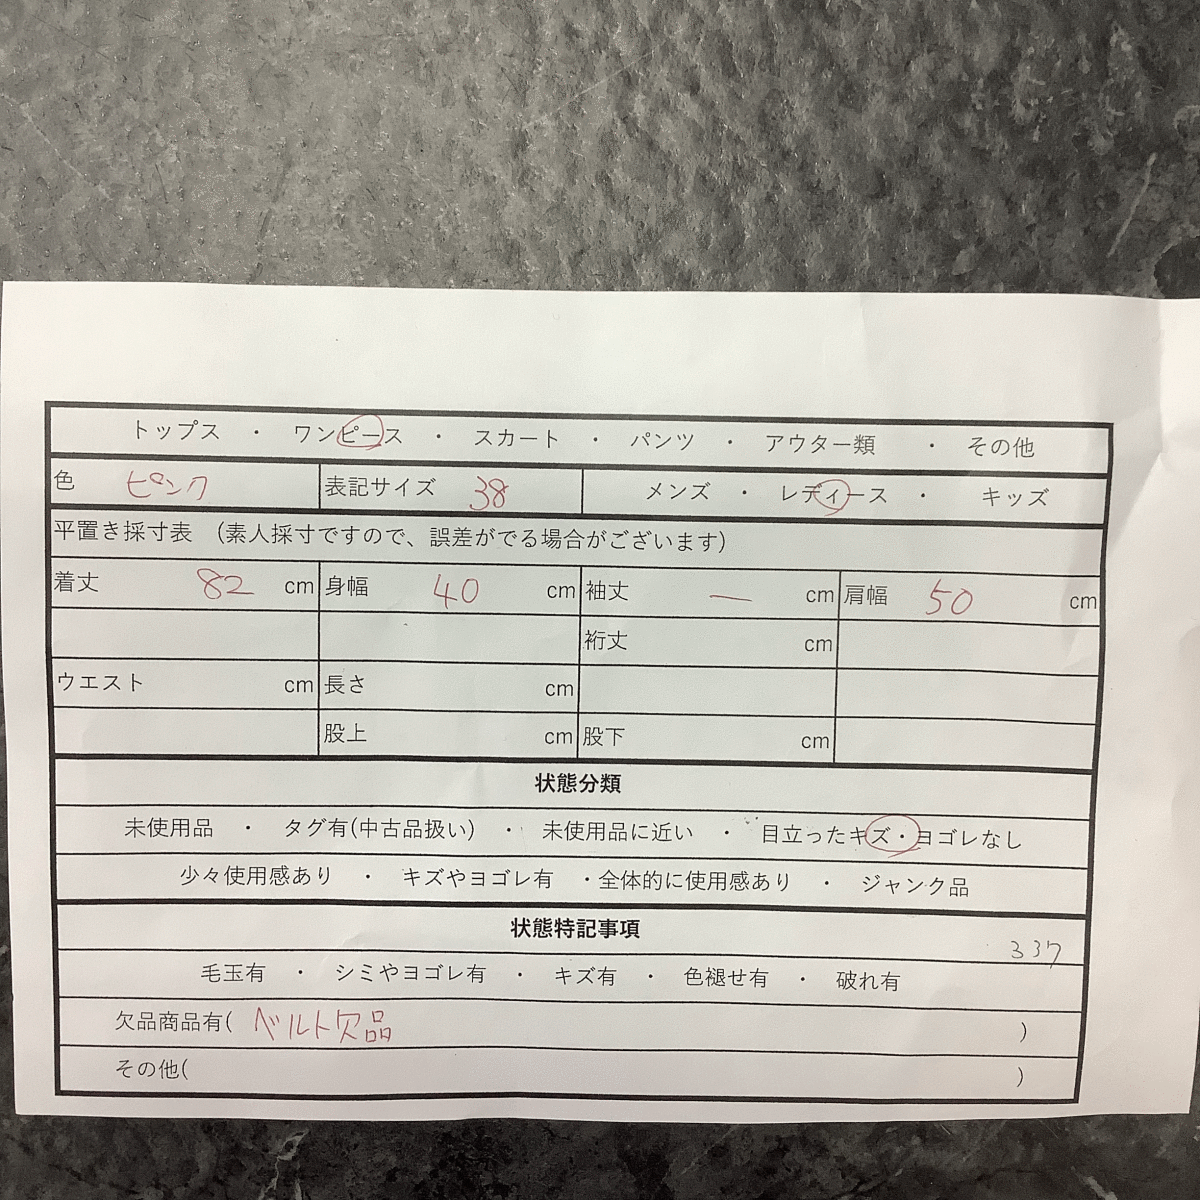 トップス ・ ワンピース ・ スカート ・ パンツ ・ アウター類 ・ その他
色 ピンク 表記サイズ 38 メンズ ・ レディース ・ キッズ
平置き採寸表 (素人採寸ですので、誤差がでる場合がございます)
着丈 82 cm 身幅 40 cm 袖丈 — cm 肩幅 50 cm
裄丈 cm
ウエスト cm 長さ cm
股上 cm 股下 cm
状態分類
未使用品 ・ タグ有(中古品扱い) ・ 未使用品に近い ・ 目立ったキズ・ヨゴレなし
少々使用感あり ・ キズやヨゴレ有 ・全体的に使用感あり ・ ジャンク品
状態特記事項
337
毛玉有 ・ シミやヨゴレ有 ・ キズ有 ・ 色褪せ有 ・ 破れ有
欠品商品有( ベルト欠品 )
その他( )